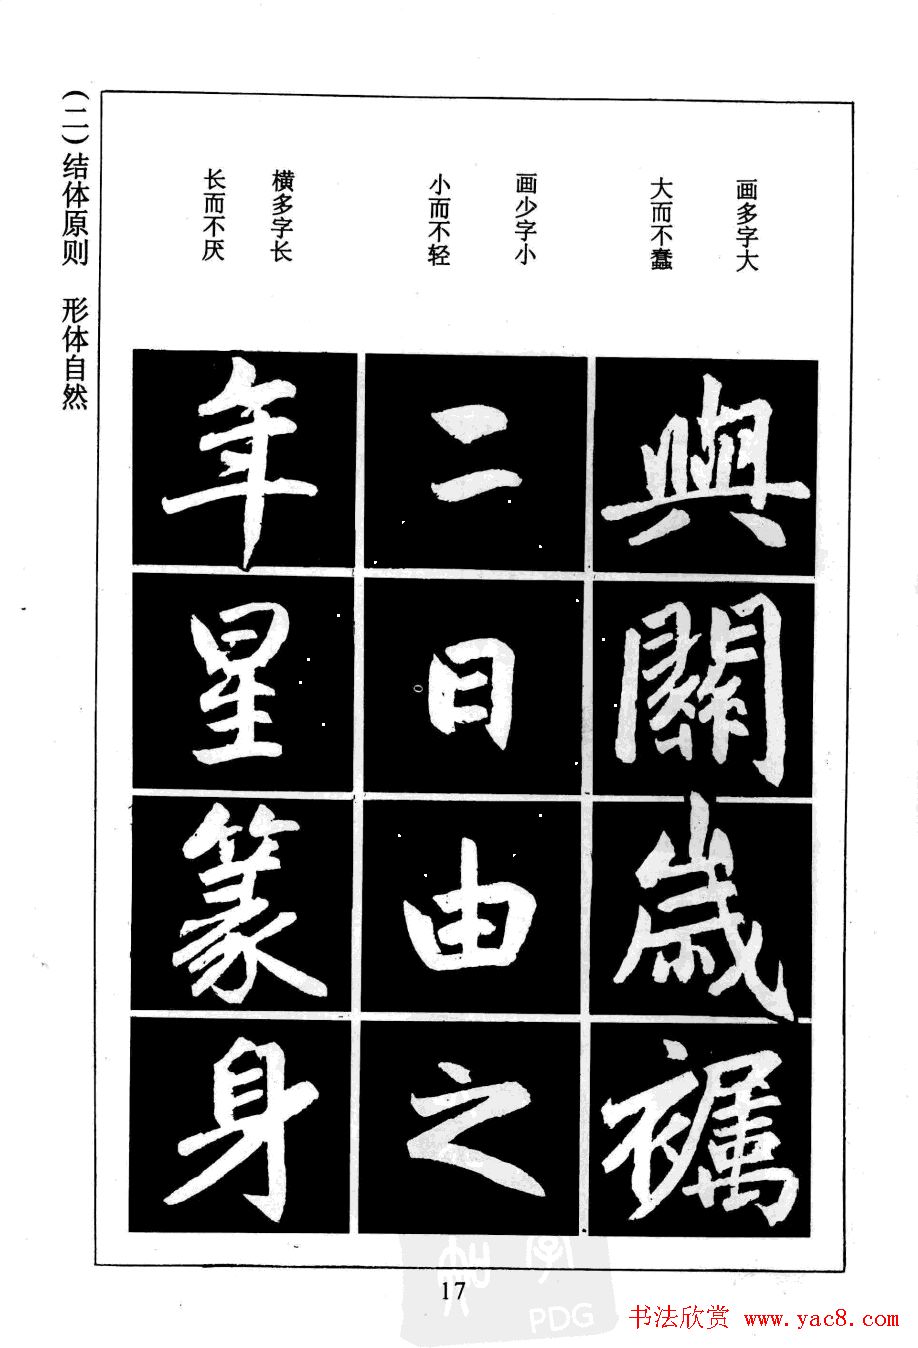 (二)结体原则　形体自然
画多字大
大而不蠢
興
關
歲
襡
画少字小
小而不轻
二
日
由
之
横多字长
长而不厌
年
星
篆
身
17
PDG
书法欣赏 www.yac8.com